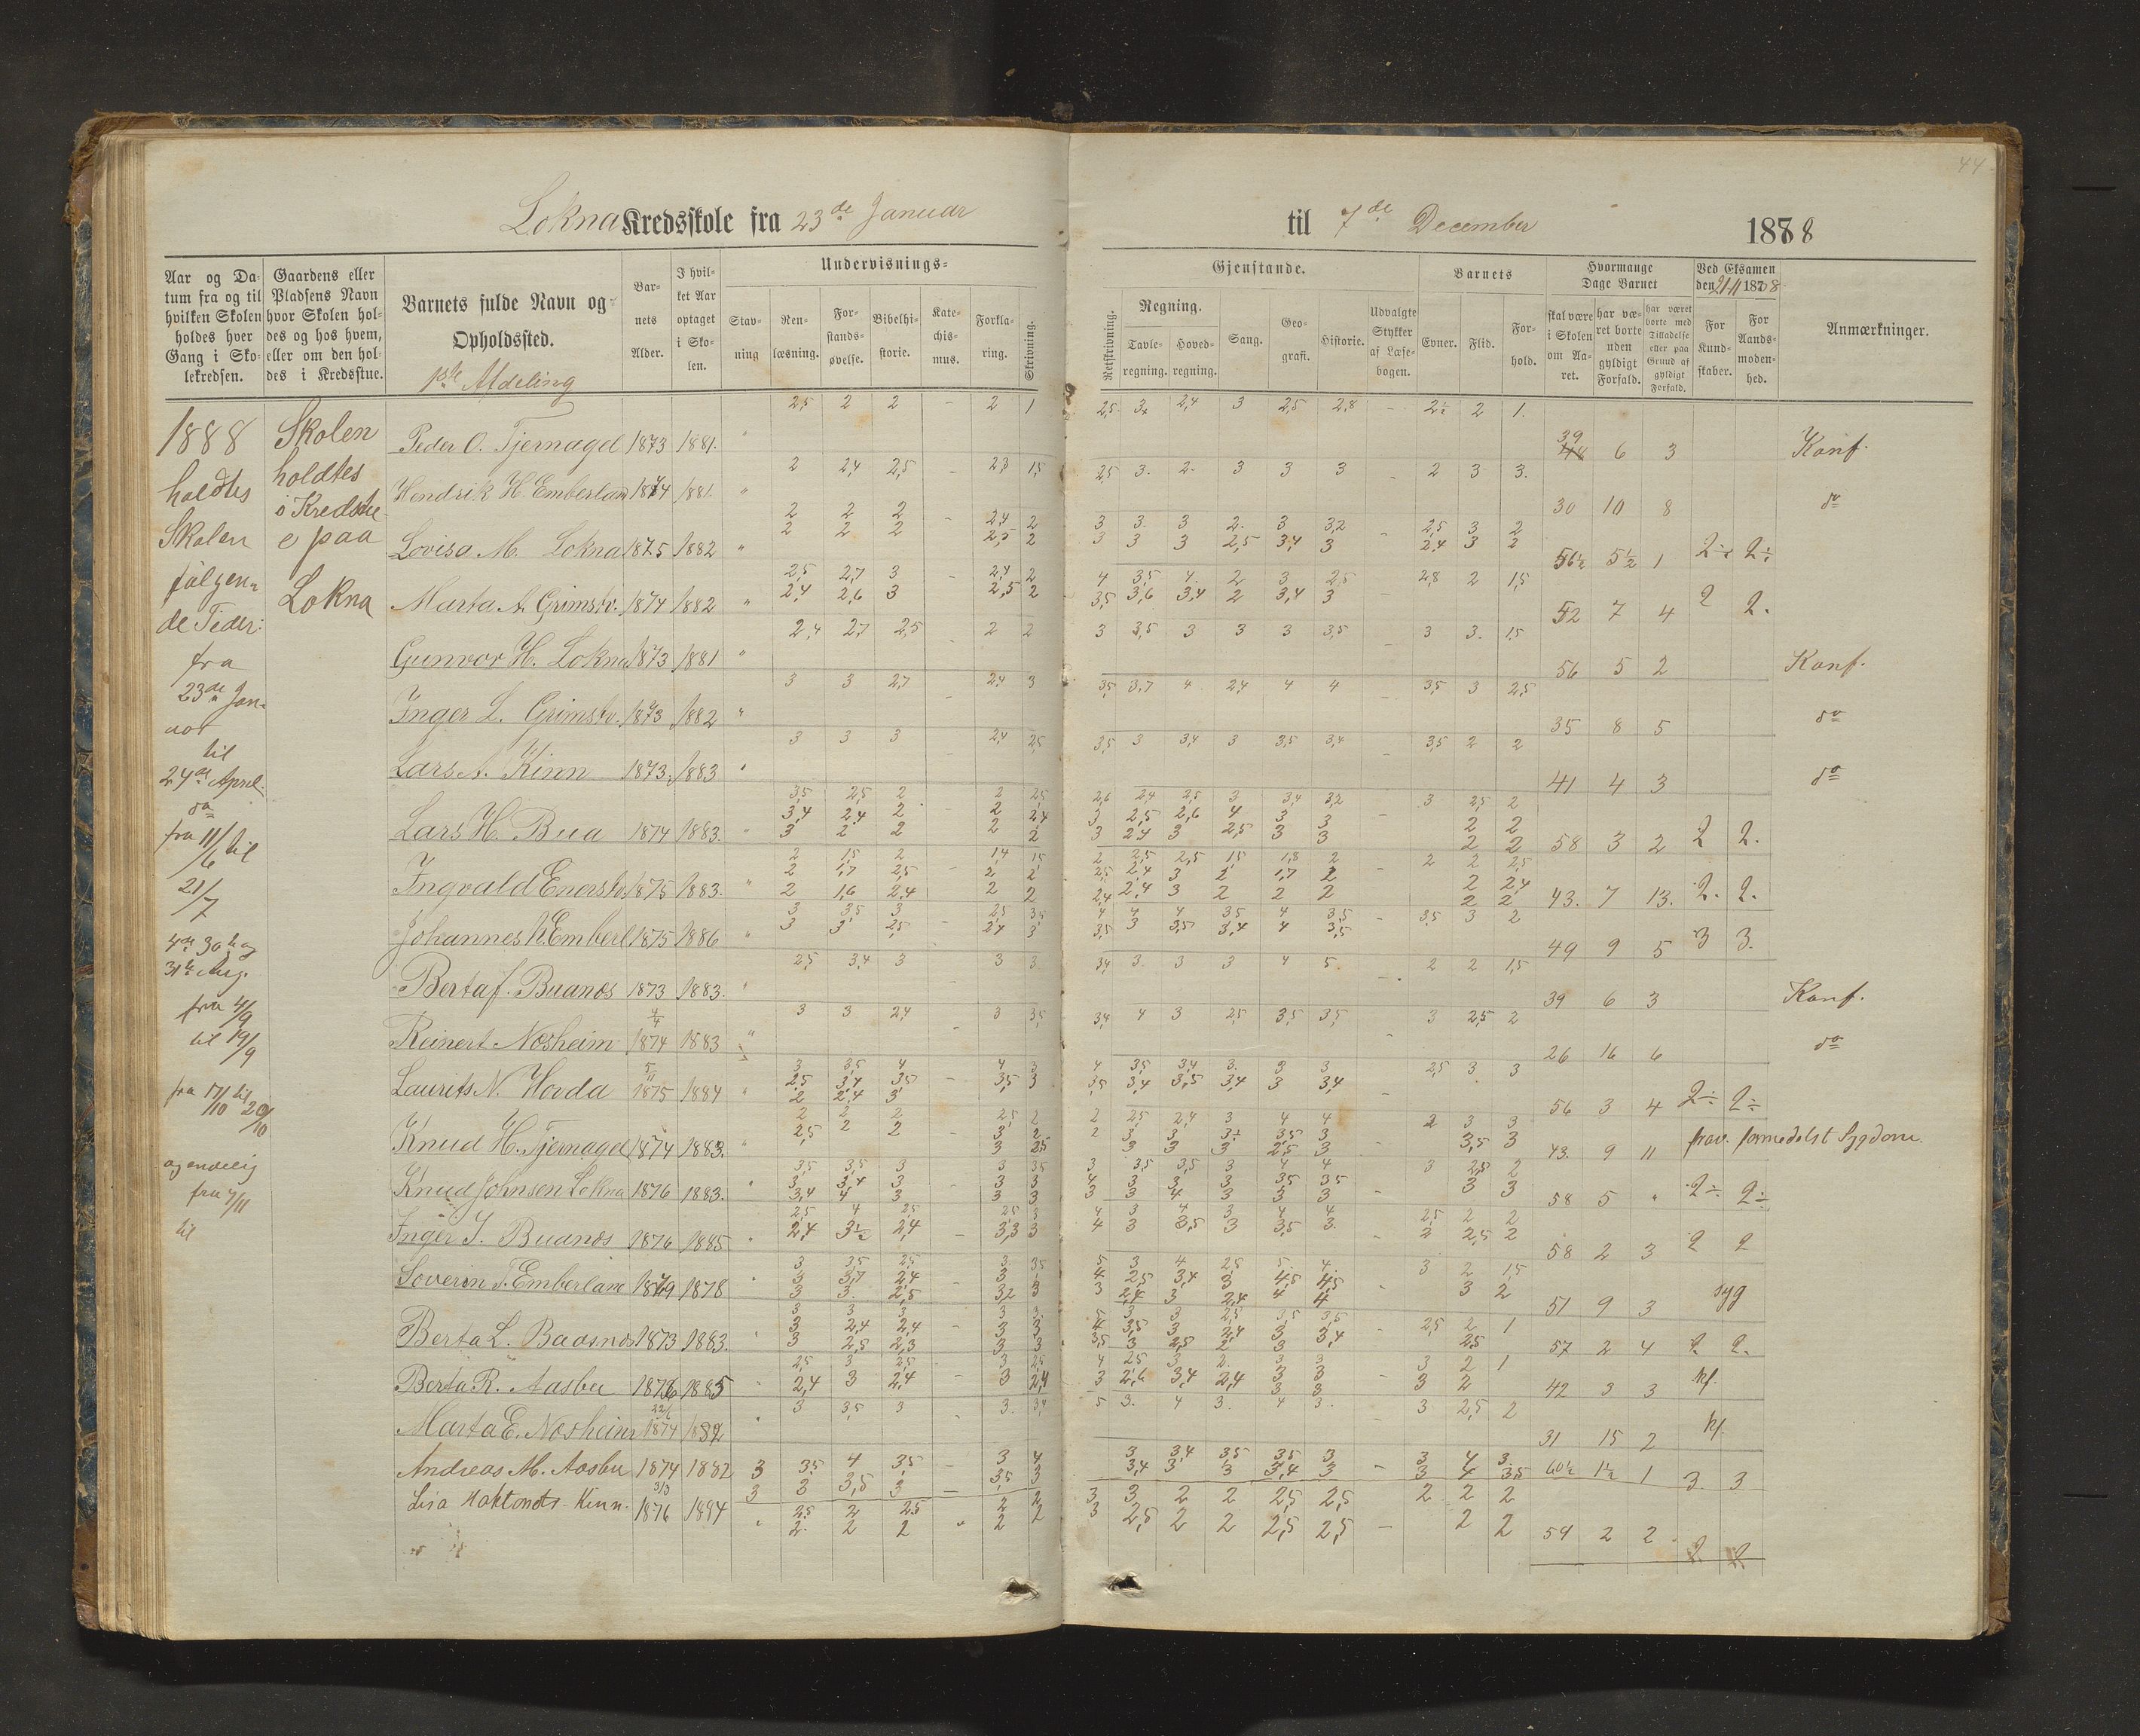 44
Lokna Kredsskole fra 23de Januar til 7de December 1888
Aar og Datum fra og til hvilken Skolen holdes hver Gang i Skolekredsen.
Gaardens eller Pladsens Navn hvor Skolen holdes og hos hvem, eller om den holdes i Kredsstue.
Barnets fulde Navn og Opholdssted.
1ste Afdeling
Barnets Alder.
I hvilket Aar optaget i Skolen.
Undervisnings-
Stavning
Renlæsning.
Forstandsøvelse.
Bibelhistorie.
Katechismus.
Forklaring.
Skrivning.
Gjenstande.
Retskrivning.
Regning.
Tavleregning.
Hovedregning.
Sang.
Geografi.
Historie.
Udvalgte Stykker af Læsebogen.
Barnets
Evner.
Flid.
Forhold.
Hvormange Dage Barnet
skal være i Skolen om Aaret.
har været borte uden gyldigt Forfald.
har været borte med Tilladelse eller paa Grund af gyldigt Forfald.
Ved Eksamen den 21-11 1878
For Kundskaber.
For Aandsmodenhed.
Anmærkninger.
1888
holdtes
Skolen
følgen-
de Tider:
fra
23de Jan-
uar
til
24de April.
do
fra 11/6 til
21/7
31te Aug.
fra 4/9
til 19/9
fra 17/10 til 20/10
og endelig
fra 7/11
til
Skolen
holdtes
i Kredstu-
e paa
Lokna
Peder O. Tjernagel 1873 1881. " 2,5 2 2 – 2 1 2,5 3 2,4 3 2,5 2,8 – 2½ 2 1. 39 6 3 Konf.
Hendrik H. Emberlan 1874 1881. " 2 2,4 2,5 – 2,3 1,5 2,5 3. 2. 3 3 3 2 3 3. 30 10 8 do
Lovisa M. Lokna 1875 1882 " 2 2 2 – 2,4 2 3 3. 3 2. 3 3,2 – 2,5 3 2
2 2 2 2,5 2 3 3 3 2,5 3,4 3 2,4 3 2 56½ 5½ 1 2÷ 2÷
Marta A. Grimstv. 1874 1882 " 2,5 2,7 3 – 2,4 2 4 3,5 4. 2 3 2,5 2,8 2 1,5
2,4 2,6 3 2,5 2 3,5 3,6 3,4 2 3,4 3 52 7 4 2 2.
Gunvor H. Lokna 1873 1881 " 2,4 2,7 2,5 2 2 3 3,5 3 3 3 3,5 – 3 3. 1,5 56 5 2 Konf.
Inger L. Grimstv. 1873 1882 " 3 3 2,7 2,4 3 3,5 3,7 4 2,4 4 4 – 3,5 3 2,5 35 8 5 do
Lars A. Kinn 1873. 1883 " 3 3 3 2,4 2,5 3,5 3 3,4 3 3,5 3,4 – 3,5 2 2 41 4 3 do
Lars H. Bua 1874 1883. " 3,5 2,5 2 2 2,5 2,6 2,4 2,5 3 3,4 3,2 3 2,5 2
3,4 2,4 2 2 2,4 3 2,5 2,6 4 3 3 – 2 2
3 2 2 2 2 3 2,4 3 2,5 3 3 2 2 58 3 2 2 2.
Ingvald Enerstv. 1875 1883. " 2 1,5 2 – 1,4 1,5 2 2,5 2,5 1,5 1,8 2 – 2 2 2,5
2 1,7 2,5 2 2 2,5 2,4 3 2 1,7 2 2 2,4
2 1,6 2,4 2 2 2,4 2,4 3 2 2 2 2 2 43. 7 13. 2. 2.
Johannes H. Emberl 1875 1886 " 3 3,5 3 – 2,5 3,5 4 4 4 3,5 4 3,5 – 3,5 3 2
3 3 2,5 2,4 3 3,5 3 3,5 3,4 4 3,5 49 9 5 3 3.
Berta J. Buanæs 1873 1883. " 2,5 3,4 3 3 3 3,4 3. 3 3 4 5 2 2 1,5 39 6 3 Konf.
Reinert Næsheim 4/4 1874 1883 " 3 3 2,4 3 3,5 3,4 4 3 2,5 3,5 3,5 3 2,5 2 26 16 6 do
Laurits N. Hovda 5/11 1875 1884 " 3 3,5 4 4 3 4 3,5 3,4 3. 3 3 2,5 3 3
2,5 3,4 3,5 – 3,5 3 3,5 3,4 3,5 3,4 3 3,4
2 2,4 3 56 3 4 2÷ 2÷
Knud H. Tjernagel 1874 1883. " 2 2 2 2,5 2 2 2,5 2,4 3 4 4 2 3 3
2,5 2 2 3 2 2 3 3 3½ 3,5 3 3,5 3
3 2,5 3 3 3 2,5 3 43. 9 11 frav. formedelst Sygdom.
Knud Johnsen Lokna 1876 1883. " 3,5 3,5 3 3 3,5 3 3,5 3,5 3 4 4 3 2,5 2
3 3,4 3 – 3 3 4 3 3 3 3,5 3,5 3 3
3,4 4 3 3 3 3 3 4 3 3 3 58 5 " 2÷ 2÷
Inger I. Buanæs 1876 1885 " 2,5 4 2,5 2,5 3 4 3 4 3 4 4 2,5 2 2
2,4 3½ 2,4 – 3,3 3 4 3 3,5 3 3,5 3. 2 2,5 2 58 2 3 2 2
Soverin T. Emberlan 1879 1878 " 3 3,5 2,5 3 3,5 5 3 4 2,5 5. 4. 3 2 1,5
3 3,7 2,4 – 3 3 4 2,5 3,4 3 4,5 4,5 3 2
3 3. 2,5 3,2 3 3 2,4 3 2,4 4 4 51 9 3 syg
Berta L. Baasnes 1873 1883. " 3 3 3 3 3. 5 3 3 2,5 3,5 3,5 2,5 2 1
3 2,4 2,4 – 3 3 4 3,5 3 2,4 3 3,4 2,5
3 2,5 2,3 3 3 3,5 3 2,5 2 3 57 2 4 2. 2.
Berta R. Aasbu 1876 1885 " 2,5 3 2,5 3 2,5 4 2,5 3 2. 3 3 3 2 1
2,4 3 2,4 – 3 2,4 3 2,6 3,4 2,4 3 3 3 2 42 3 3 kf.
Marta E. Næsheim 22/6 1874 1882 " 3 3,5 3 3. 3,4 5 3. 4 3. 4 3. 3 2,5 2 31 15 2 kf.
Andreas M. Aasbu 1874 1882 3 3,5 4 3,5 3 4 3 3,4 3,5 3,5 3 3 4 3
3 3 3,5 3 – 3,5 3 3,4 3 3 3,4 3 – 3 4 3,5 60½ 1½ 1 3. 3
Lisa Kinn. 3/3 1876 1884 " 2,5 2 2,5 2 2 3 3 2 2 2,5 2,5 2 2 2
2 2 2 " 2 2 3 2,5 2 2 2,5 2,5 – 2 2 59 2 2 2. 2